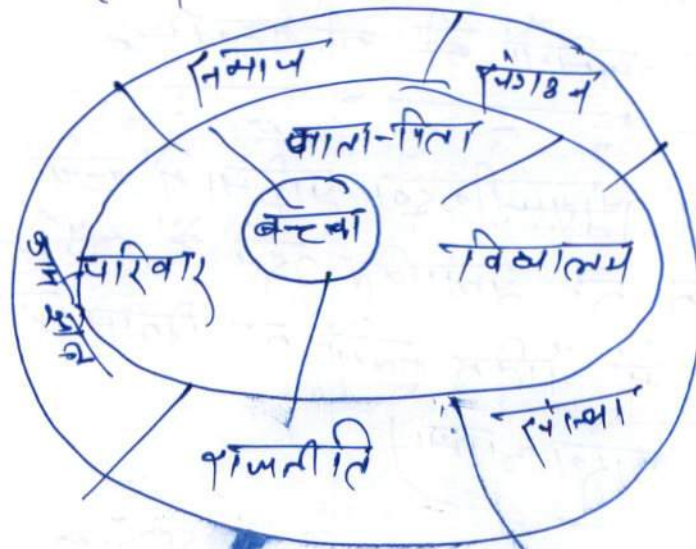 समाज
संगठन
माता-पिता
बच्चा
परिवार
विद्यालय
संस्था
राजनीति